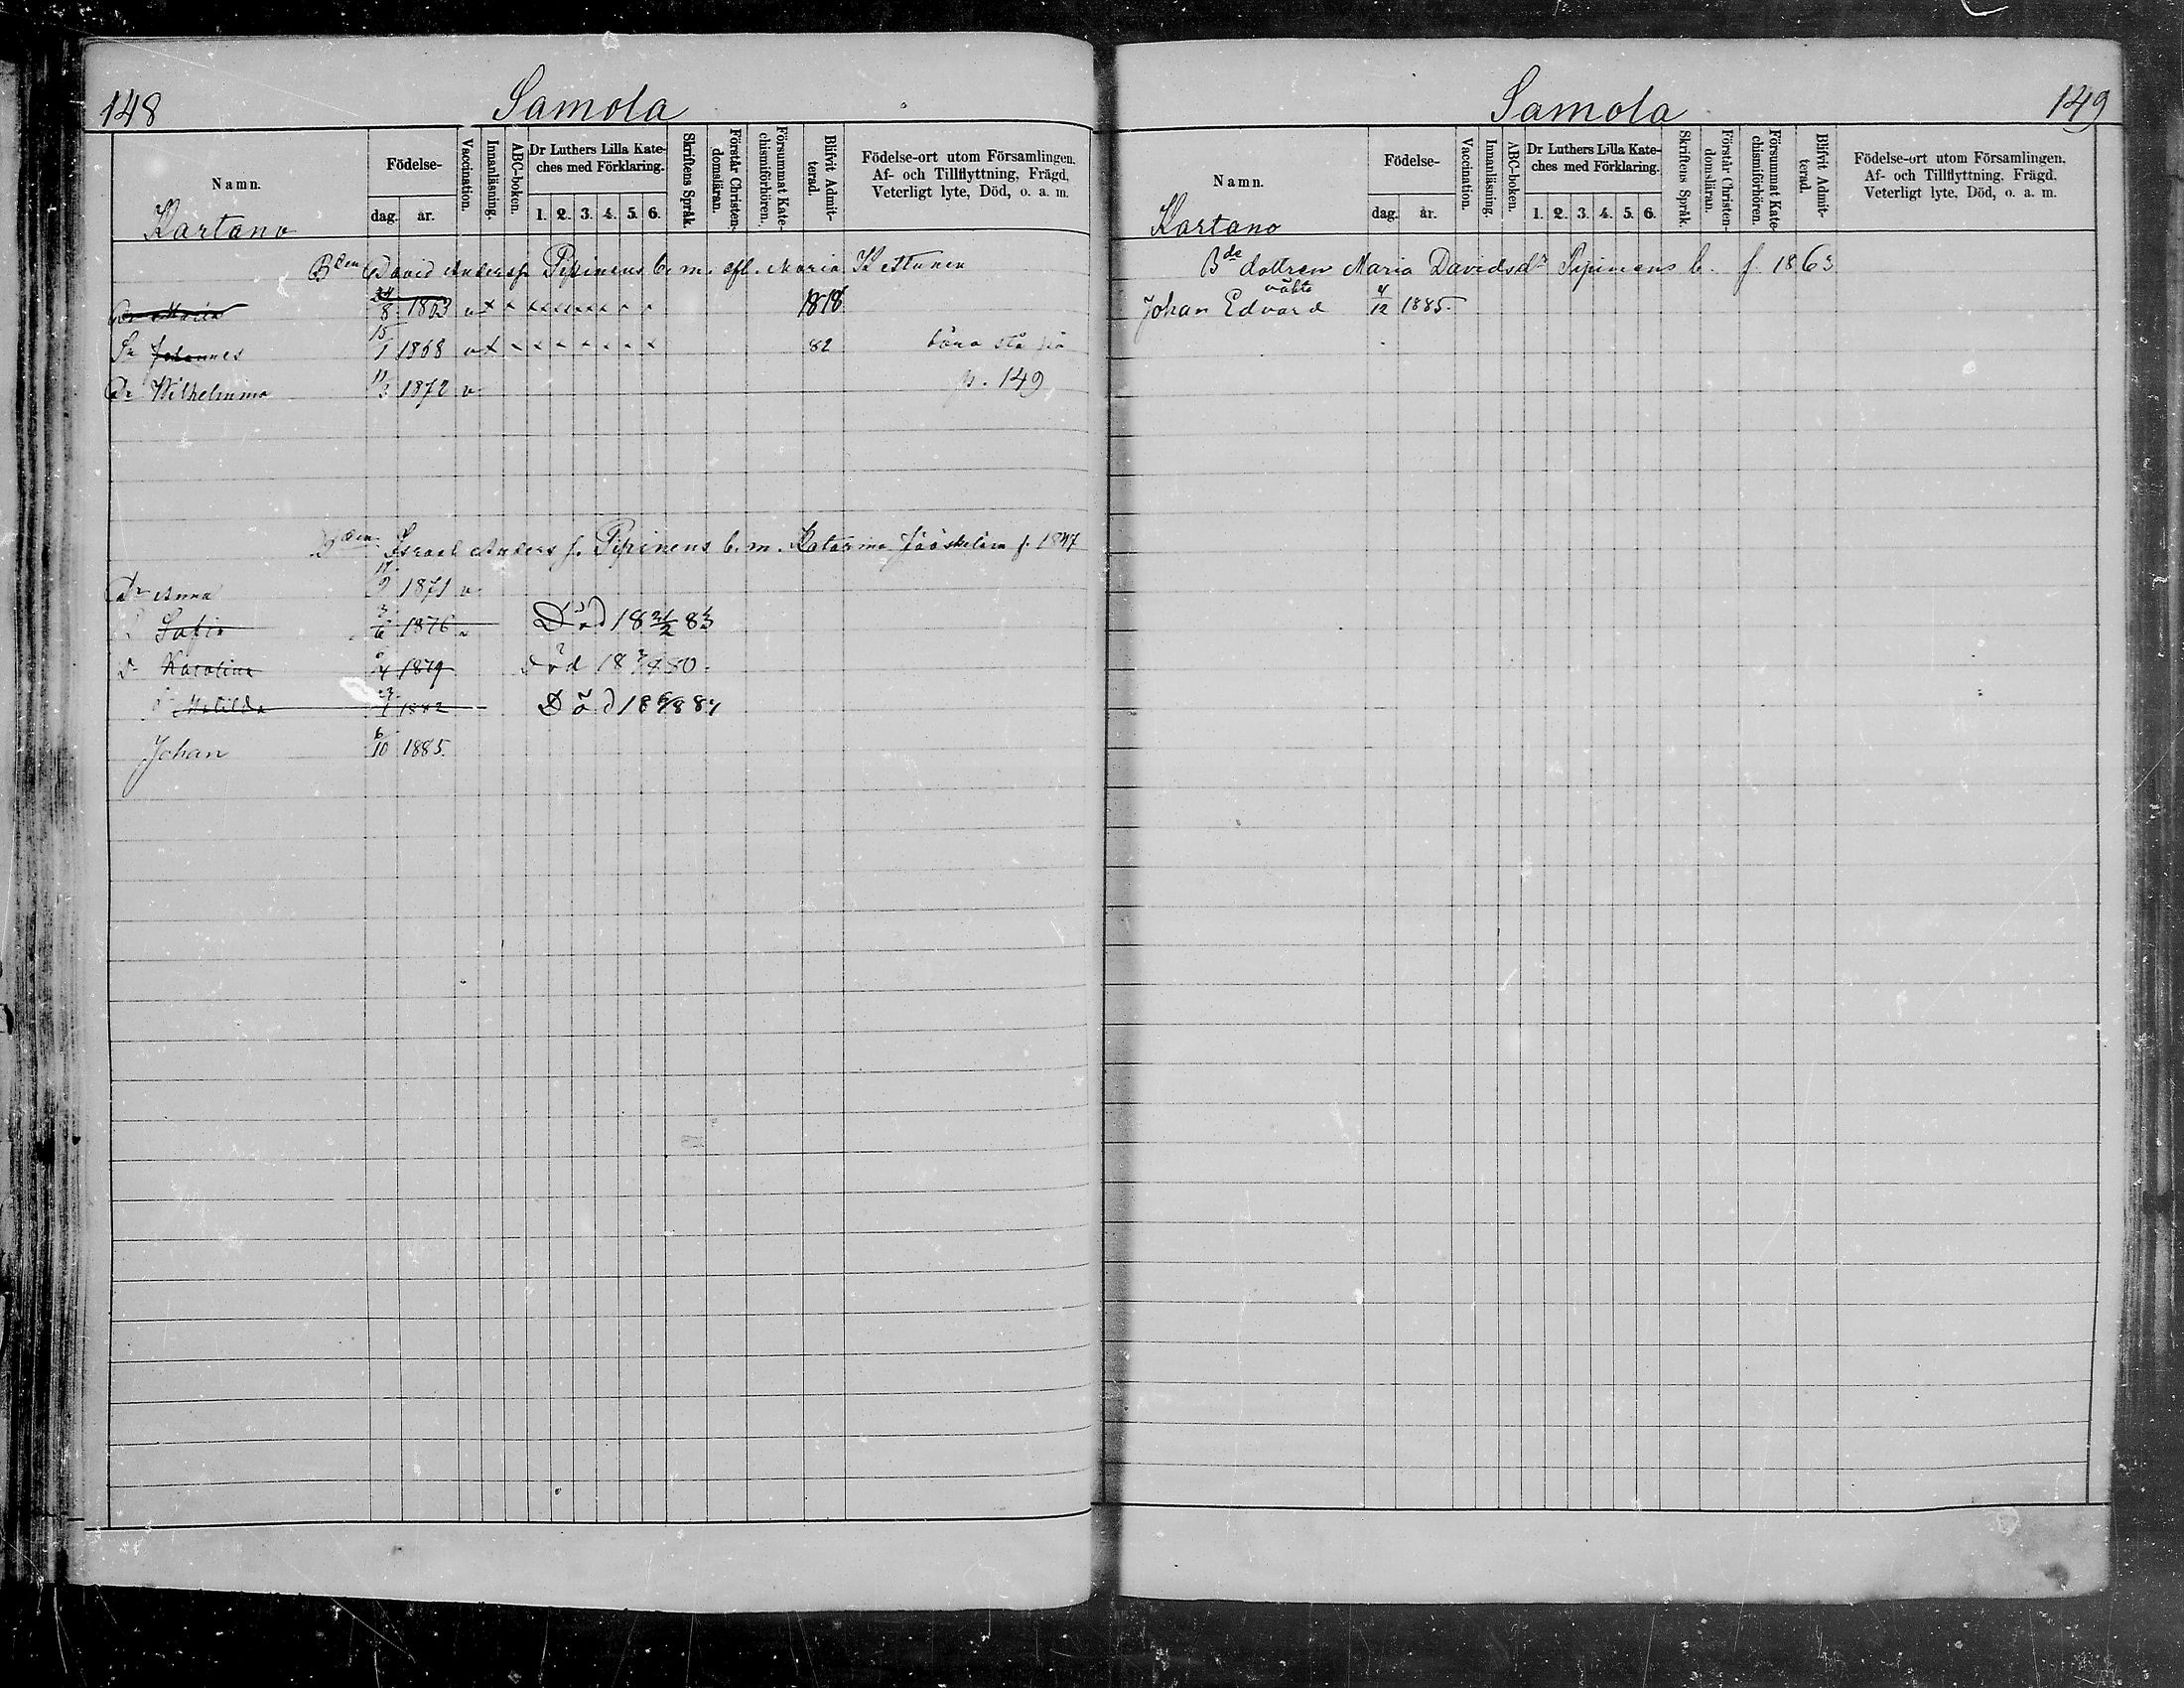 148
Samola
Namn.
Födelse-
dag.
år.
Vaccination.
Innanläsning.
ABC-boken.
Dr Luthers Lilla Kate-
ches med Förklaring.
1. 2. 3. 4. 5. 6.
Skriftens Språk.
Förstår Christen-
domsläran.
Försummat Kate-
chismiförhören.
Blifvit Admit-
terad.
Födelse-ort utom Församlingen.
Af- och Tillflyttning, Frägd,
Veterligt lyte, Död, o. a. m.
Kartano
Bden David Anders f. Pipinens b. m. afl. Maria Kettunen
Dr Maria 24/8 1863 v x x x x x x x x x 1878
Sn Johannes 15/1 1868 v x x x x x x x x 82 stå på
Dr Wilhelmina 11/3 1872 v p. 149
Bden Israel Anders f. Pipinens b. m. Katarina Jääskeläin f. 1847
Dr Anna 17/9 1871 v
Sofia 3/6 1876 v Död 18 21/2 83
Dr Karolina 1879 Död 18 80.
Matilda 23/1 1882 Död 18 6/8 84
Johan 6/10 1885.
Samola
149
Namn.
Födelse-
dag.
år.
Vaccination.
Innanläsning.
ABC-boken.
Dr Luthers Lilla Kate-
ches med Förklaring.
1. 2. 3. 4. 5. 6.
Skriftens Språk.
Förstår Christen-
domsläran.
Försummat Kate-
chismiförhören.
Blifvit Admit-
terad.
Födelse-ort utom Församlingen.
Af- och Tillflyttning, Frägd,
Veterligt lyte, Död, o. a. m.
Kartano
Bde dottren Maria Davidsdr Pipinens b. f. 1863
oäkta
Johan Edvard 4/12 1885.